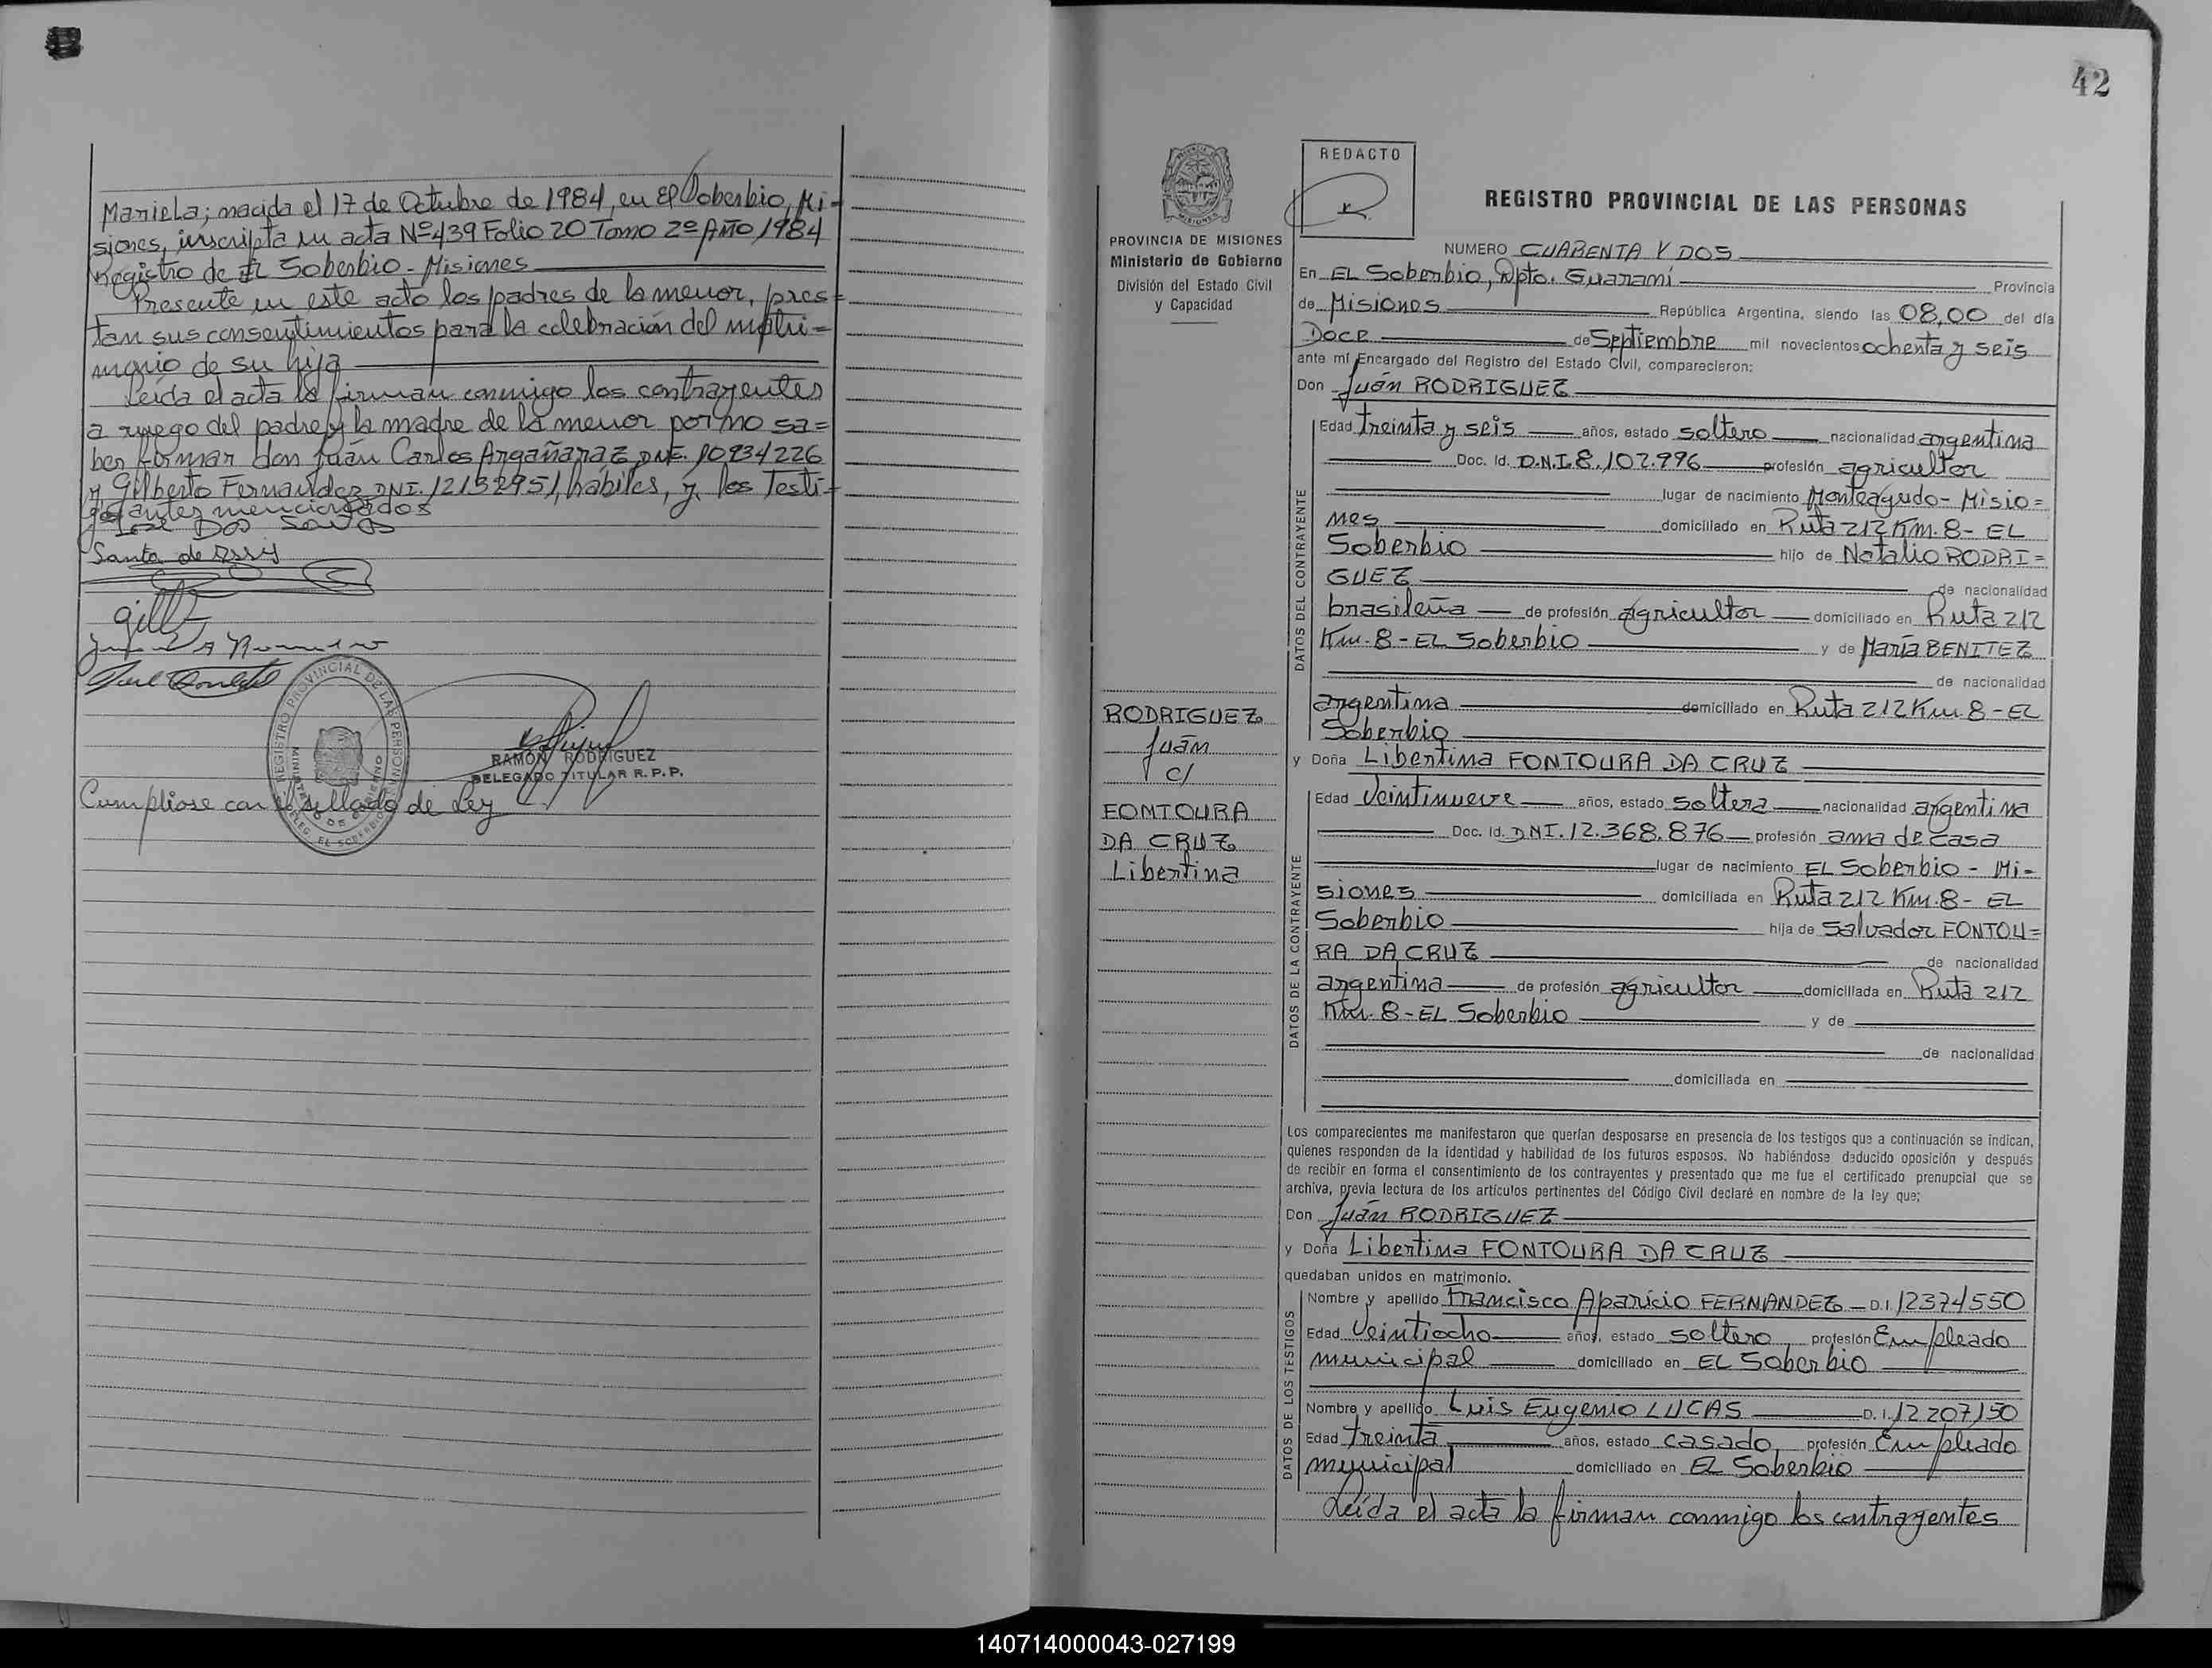 Mariela; nacida el 17 de Octubre de 1984, en El Soberbio, Mi=
siones, inscripta en acta Nº 439 Folio 20 Tomo 2º Año 1984
Registro de El Soberbio - Misiones
Presente en este acto los padres de la menor, pres=
tan sus consentimientos para la celebración del matri=
monio de su hija
Leída el acta la firman conmigo los contrayentes
a ruego del padre y la madre de la menor por no sa=
ber firmar don Juán Carlos Argañaraz DNI. 10934226
y Gilberto Fernandez DNI. 12152951, hábiles, y los Testi=
gos antes mencionados
José Dos Santos
Santa de Assis
RAMON RODRIGUEZ
DELEGADO TITULAR R.P.P.
REGISTRO PROVINCIAL DE LAS PERSONAS
MINISTERIO DE GOBIERNO
DELEG. EL SOBERBIO
Cumpliose con el sellado de Ley
42
REDACTO
PROVINCIA DE MISIONES
Ministerio de Gobierno
División del Estado Civil
y Capacidad
RODRIGUEZ
Juán
c/
FONTOURA
DA CRUZ
Libertina
REGISTRO PROVINCIAL DE LAS PERSONAS
NUMERO CUARENTA Y DOS
En EL Soberbio, Dpto. Guaraní Provincia
de Misiones República Argentina, siendo las 08,00 del día
Doce de Septiembre mil novecientos ochenta y seis
ante mí Encargado del Registro del Estado Civil, comparecieron:
Don Juán RODRIGUEZ
DATOS DEL CONTRAYENTE
Edad treinta y seis años, estado soltero nacionalidad argentina
Doc. Id. D.N.I. 8.107.996 profesión agricultor
lugar de nacimiento Monteagudo - Misio=
nes domiciliado en Ruta 212 Km. 8 - EL
Soberbio hijo de Natalio RODRI=
GUEZ de nacionalidad
brasileña de profesión agricultor domiciliado en Ruta 212
Km. 8 - EL Soberbio y de María BENITEZ
de nacionalidad
argentina domiciliado en Ruta 212 Km 8 - EL
Soberbio
y Doña Libertina FONTOURA DA CRUZ
DATOS DE LA CONTRAYENTE
Edad Veintinueve años, estado soltera nacionalidad argentina
Doc. Id. DNI. 12.368.876 profesión ama de casa
lugar de nacimiento EL Soberbio - Mi-
siones domiciliada en Ruta 212 Km. 8 - EL
Soberbio hija de Salvador FONTOU=
RA DA CRUZ de nacionalidad
argentina de profesión agricultor domiciliada en Ruta 212
Km. 8 - EL Soberbio y de
de nacionalidad
domiciliada en
Los comparecientes me manifestaron que querían desposarse en presencia de los testigos que a continuación se indican,
quienes responden de la identidad y habilidad de los futuros esposos. No habiéndose deducido oposición y después
de recibir en forma el consentimiento de los contrayentes y presentado que me fue el certificado prenupcial que se
archiva, previa lectura de los artículos pertinentes del Código Civil declaré en nombre de la ley que;
Don Juán RODRIGUEZ
y Doña Libertina FONTOURA DA CRUZ
quedaban unidos en matrimonio.
DATOS DE LOS TESTIGOS
Nombre y apellido Francisco Aparicio FERNANDEZ D.I. 12374550
Edad Veintiocho años, estado soltero profesión Empleado
municipal domiciliado en EL Soberbio
Nombre y apellido Luis Eugenio LUCAS D.I. 12207150
Edad treinta años, estado casado profesión Empleado
municipal domiciliado en EL Soberbio
Leída el acta la firman conmigo los contrayentes
140714000043-027199